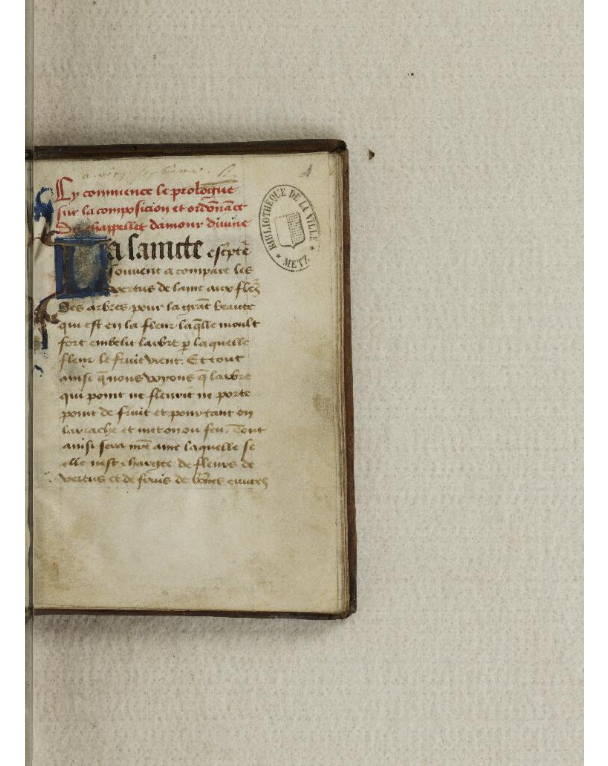 Cy commence le prologue
sur la composicion et ordonāce
du chappellet damour divine
La saincte escptē
souvent a comparé les
vertus de lame aux fleᷣs
Des arbres pour la grāt beaute
qui est en la fleur laq̄lle moult
fort embelit larbre ꝑ laquelle
fleur le fruit vient. Et tout
ainsi q̄ nous voyons q̄ larbre
qui point ne fleurit ne porte
point de fruit et pourtant on
larrache et met on ou feu. Tout
ainsi sera nr̄e ame laquelle se
elle nest chargee de fleurs de
vertus et de fruis de bōnes euvres
BIBLIOTHÈQUE DE LA VILLE
* METZ *